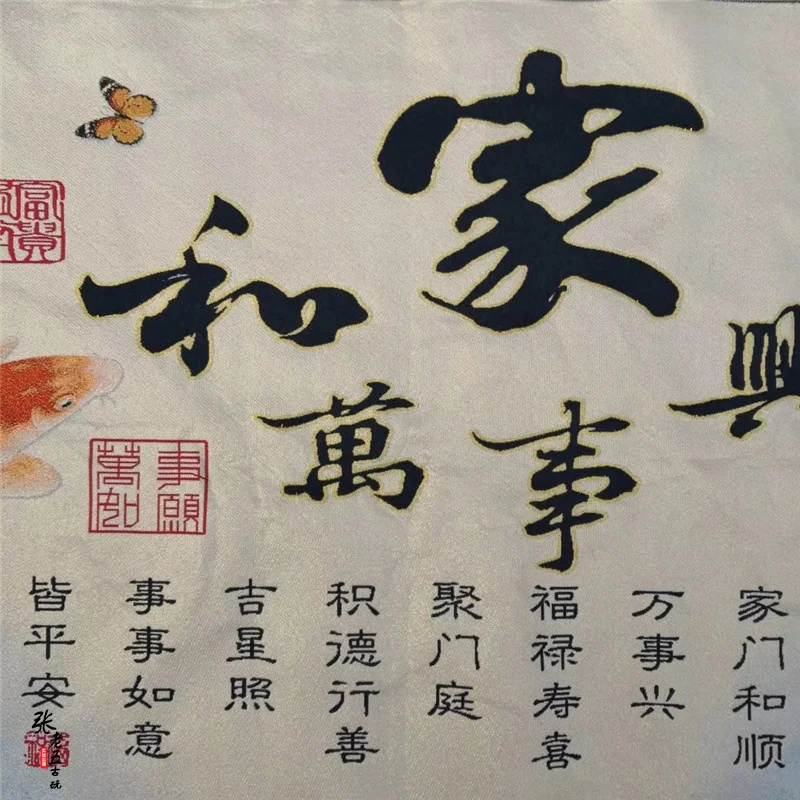 家和
萬事興
富貴
萬事
如願
家门和顺
万事兴
福禄寿喜
聚门庭
积德行善
吉星照
事事如意
皆平安
张老五古玩